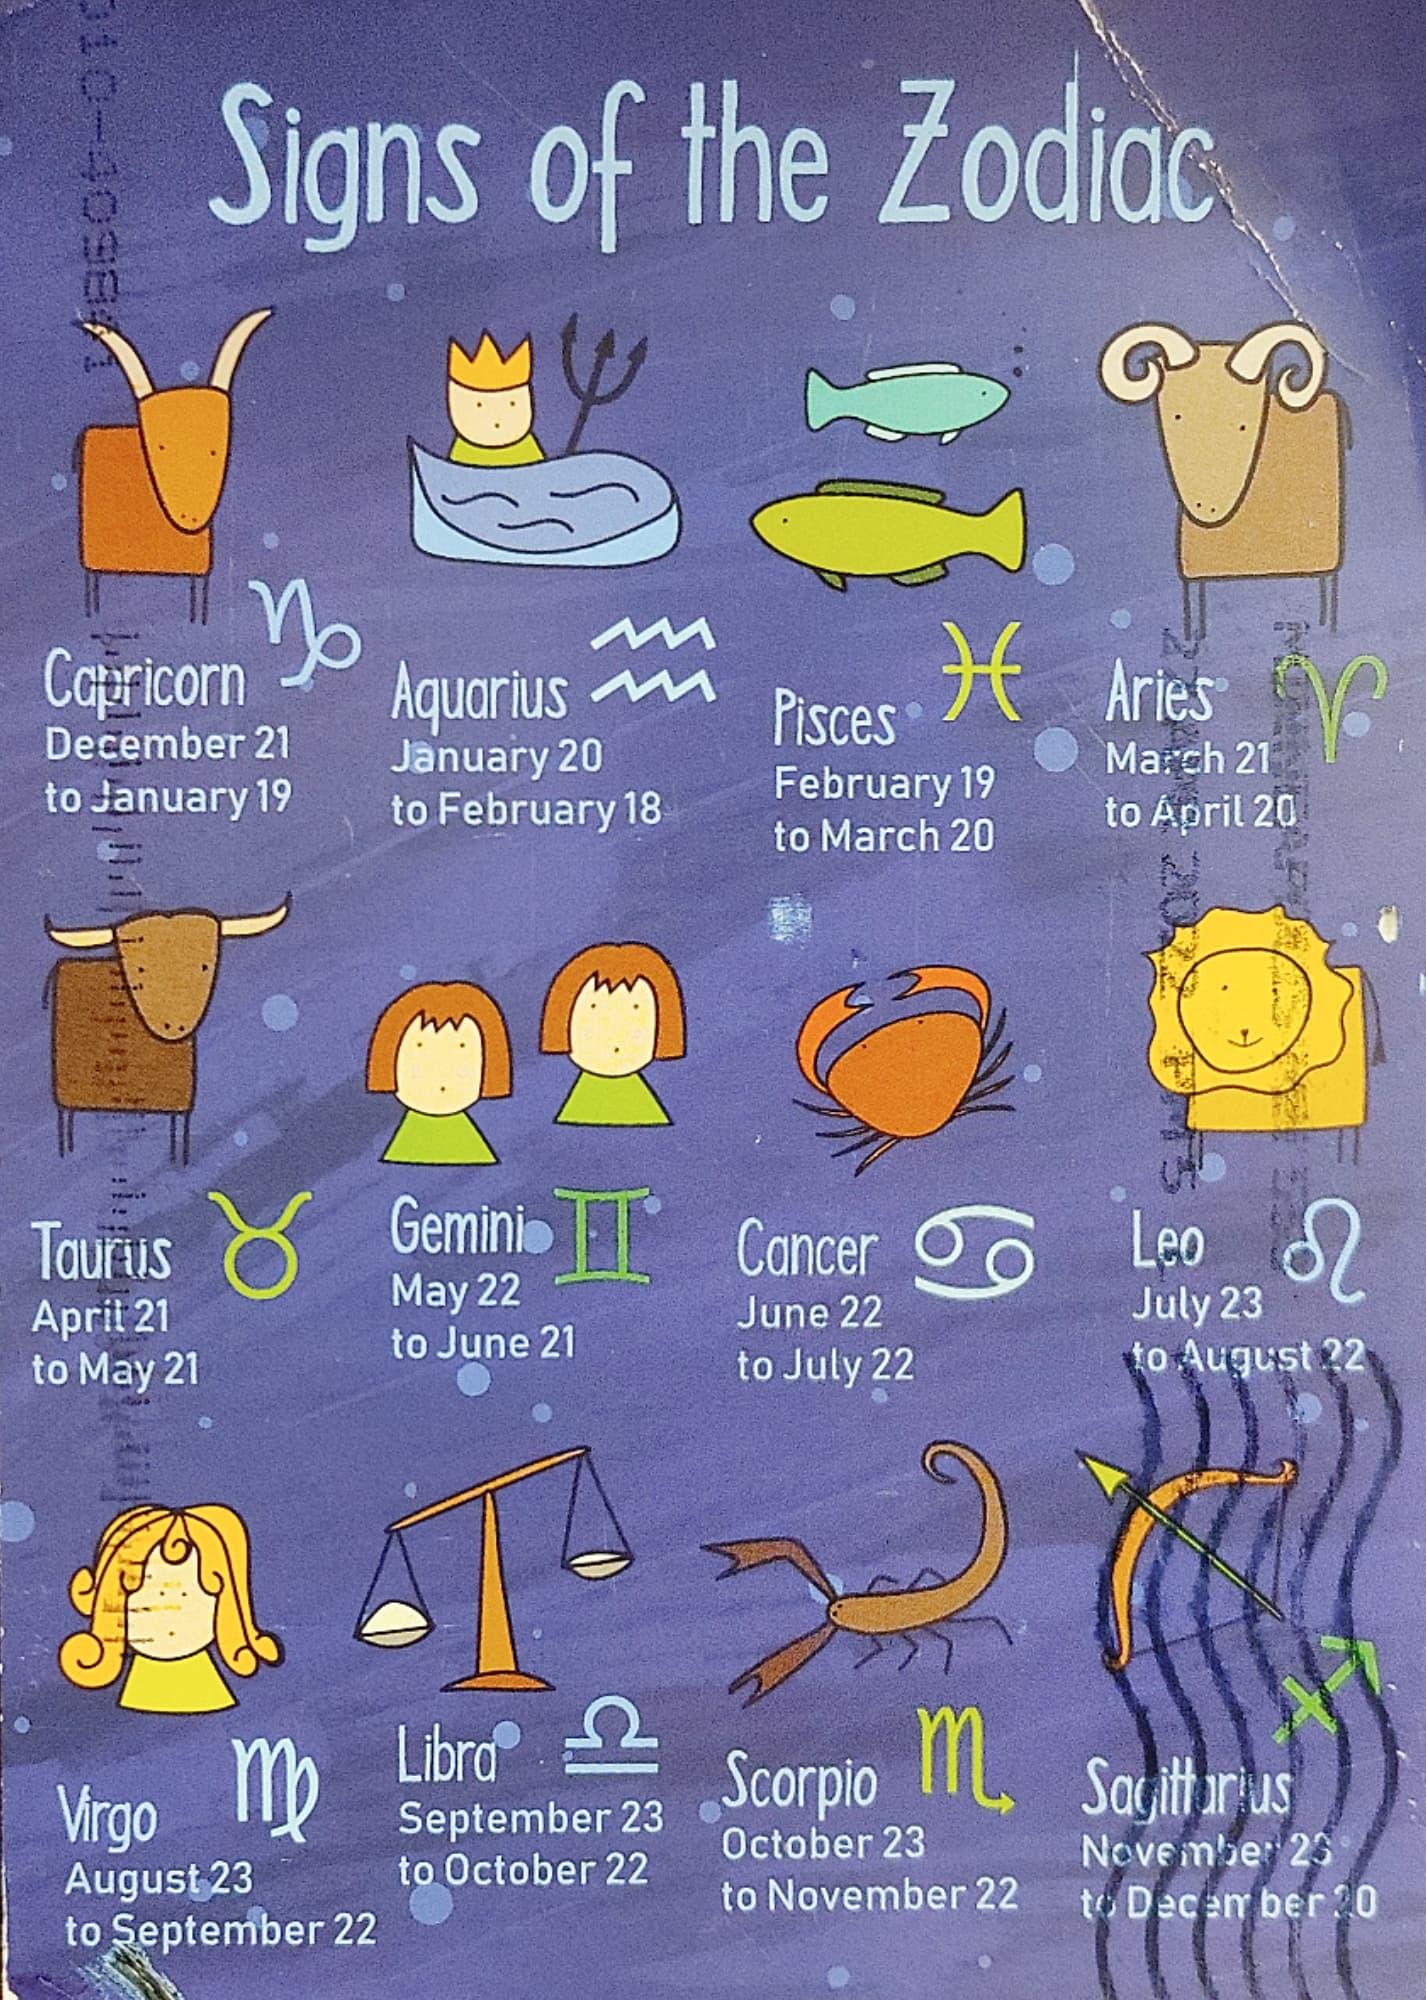 Signs of the Zodiac
Capricorn
December 21
to January 19
Aquarius
January 20
to February 18
Pisces
February 19
to March 20
Aries
March 21
to April 20
Taurus
April 21
to May 21
Gemini
May 22
to June 21
Cancer
June 22
to July 22
Leo
July 23
to August 22
Virgo
August 23
to September 22
Libra
September 23
to October 22
Scorpio
October 23
to November 22
Sagittarius
November 23
to December 20